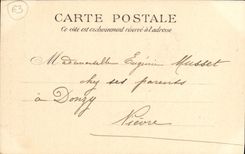 E3
CARTE POSTALE
Ce côté est exclusivement réservé à l'adresse
Mademoiselle Eugénie Musset
chez ses parents
à Donzy
Nièvre